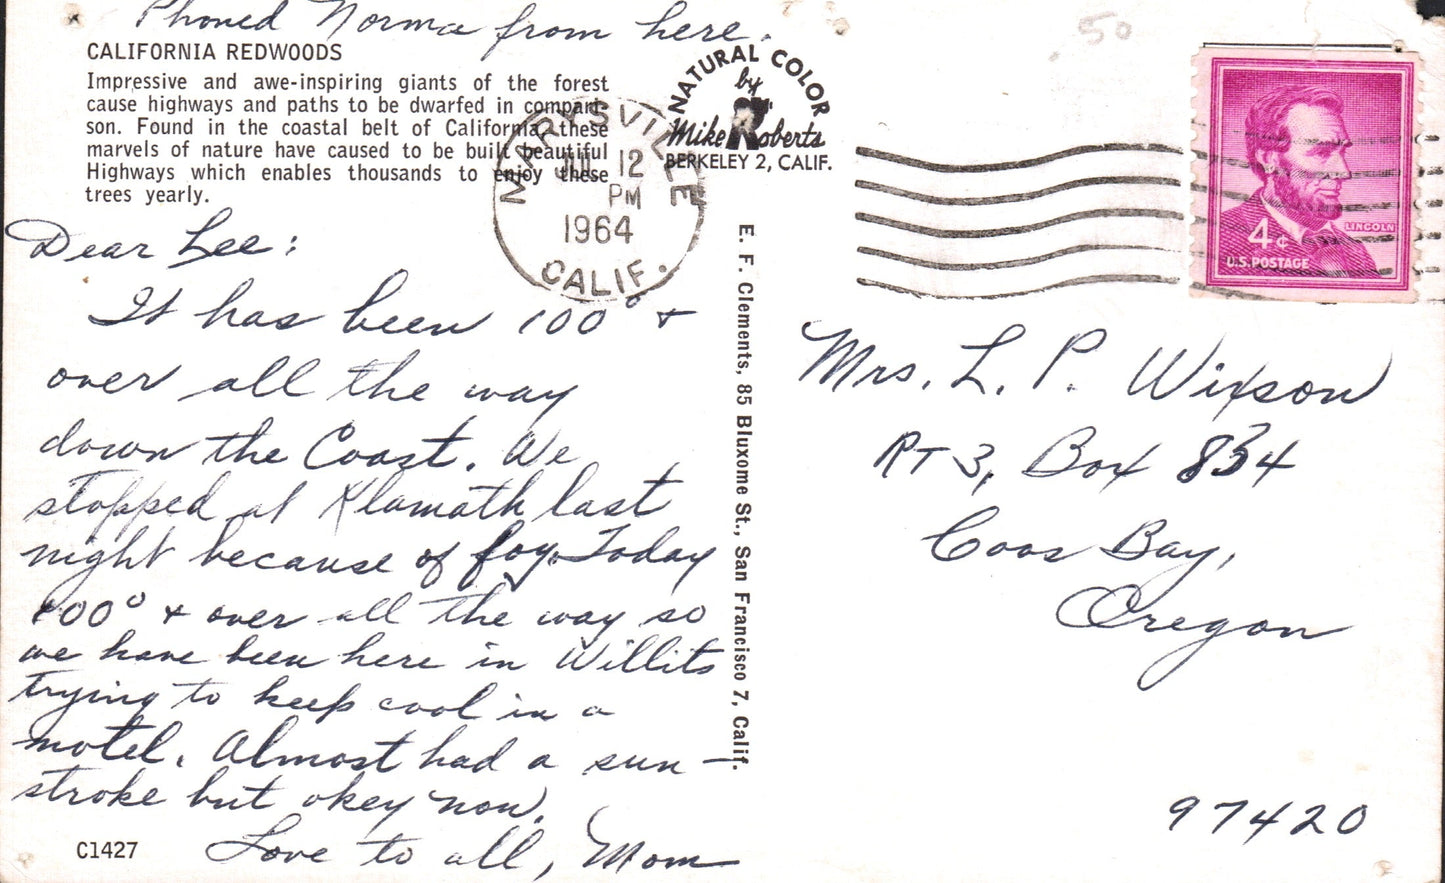 Phoned Norma from here.
CALIFORNIA REDWOODS
Impressive and awe-inspiring giants of the forest
cause highways and paths to be dwarfed in compari-
son. Found in the coastal belt of California, these
marvels of nature have caused to be built beautiful
Highways which enables thousands to enjoy these
trees yearly.
Dear Lee:
It has been 100° +
over all the way
down the Coast. We
stopped at Klamath last
night because of fog. Today
100° + over all the way so
we have been here in Willits
trying to keep cool in a
motel. Almost had a sun-
stroke but okey now.
Love to all, Mom
C1427
NATURAL COLOR
by
Mike Roberts
BERKELEY 2, CALIF.
MARYSVILLE
JUL 12
PM
1964
CALIF.
E. F. Clements, 85 Bluxome St., San Francisco 7, Calif.
.50
4¢
LINCOLN
U.S. POSTAGE
Mrs. L. P. Wixson
RT 3, Box 834
Coos Bay,
Oregon
97420